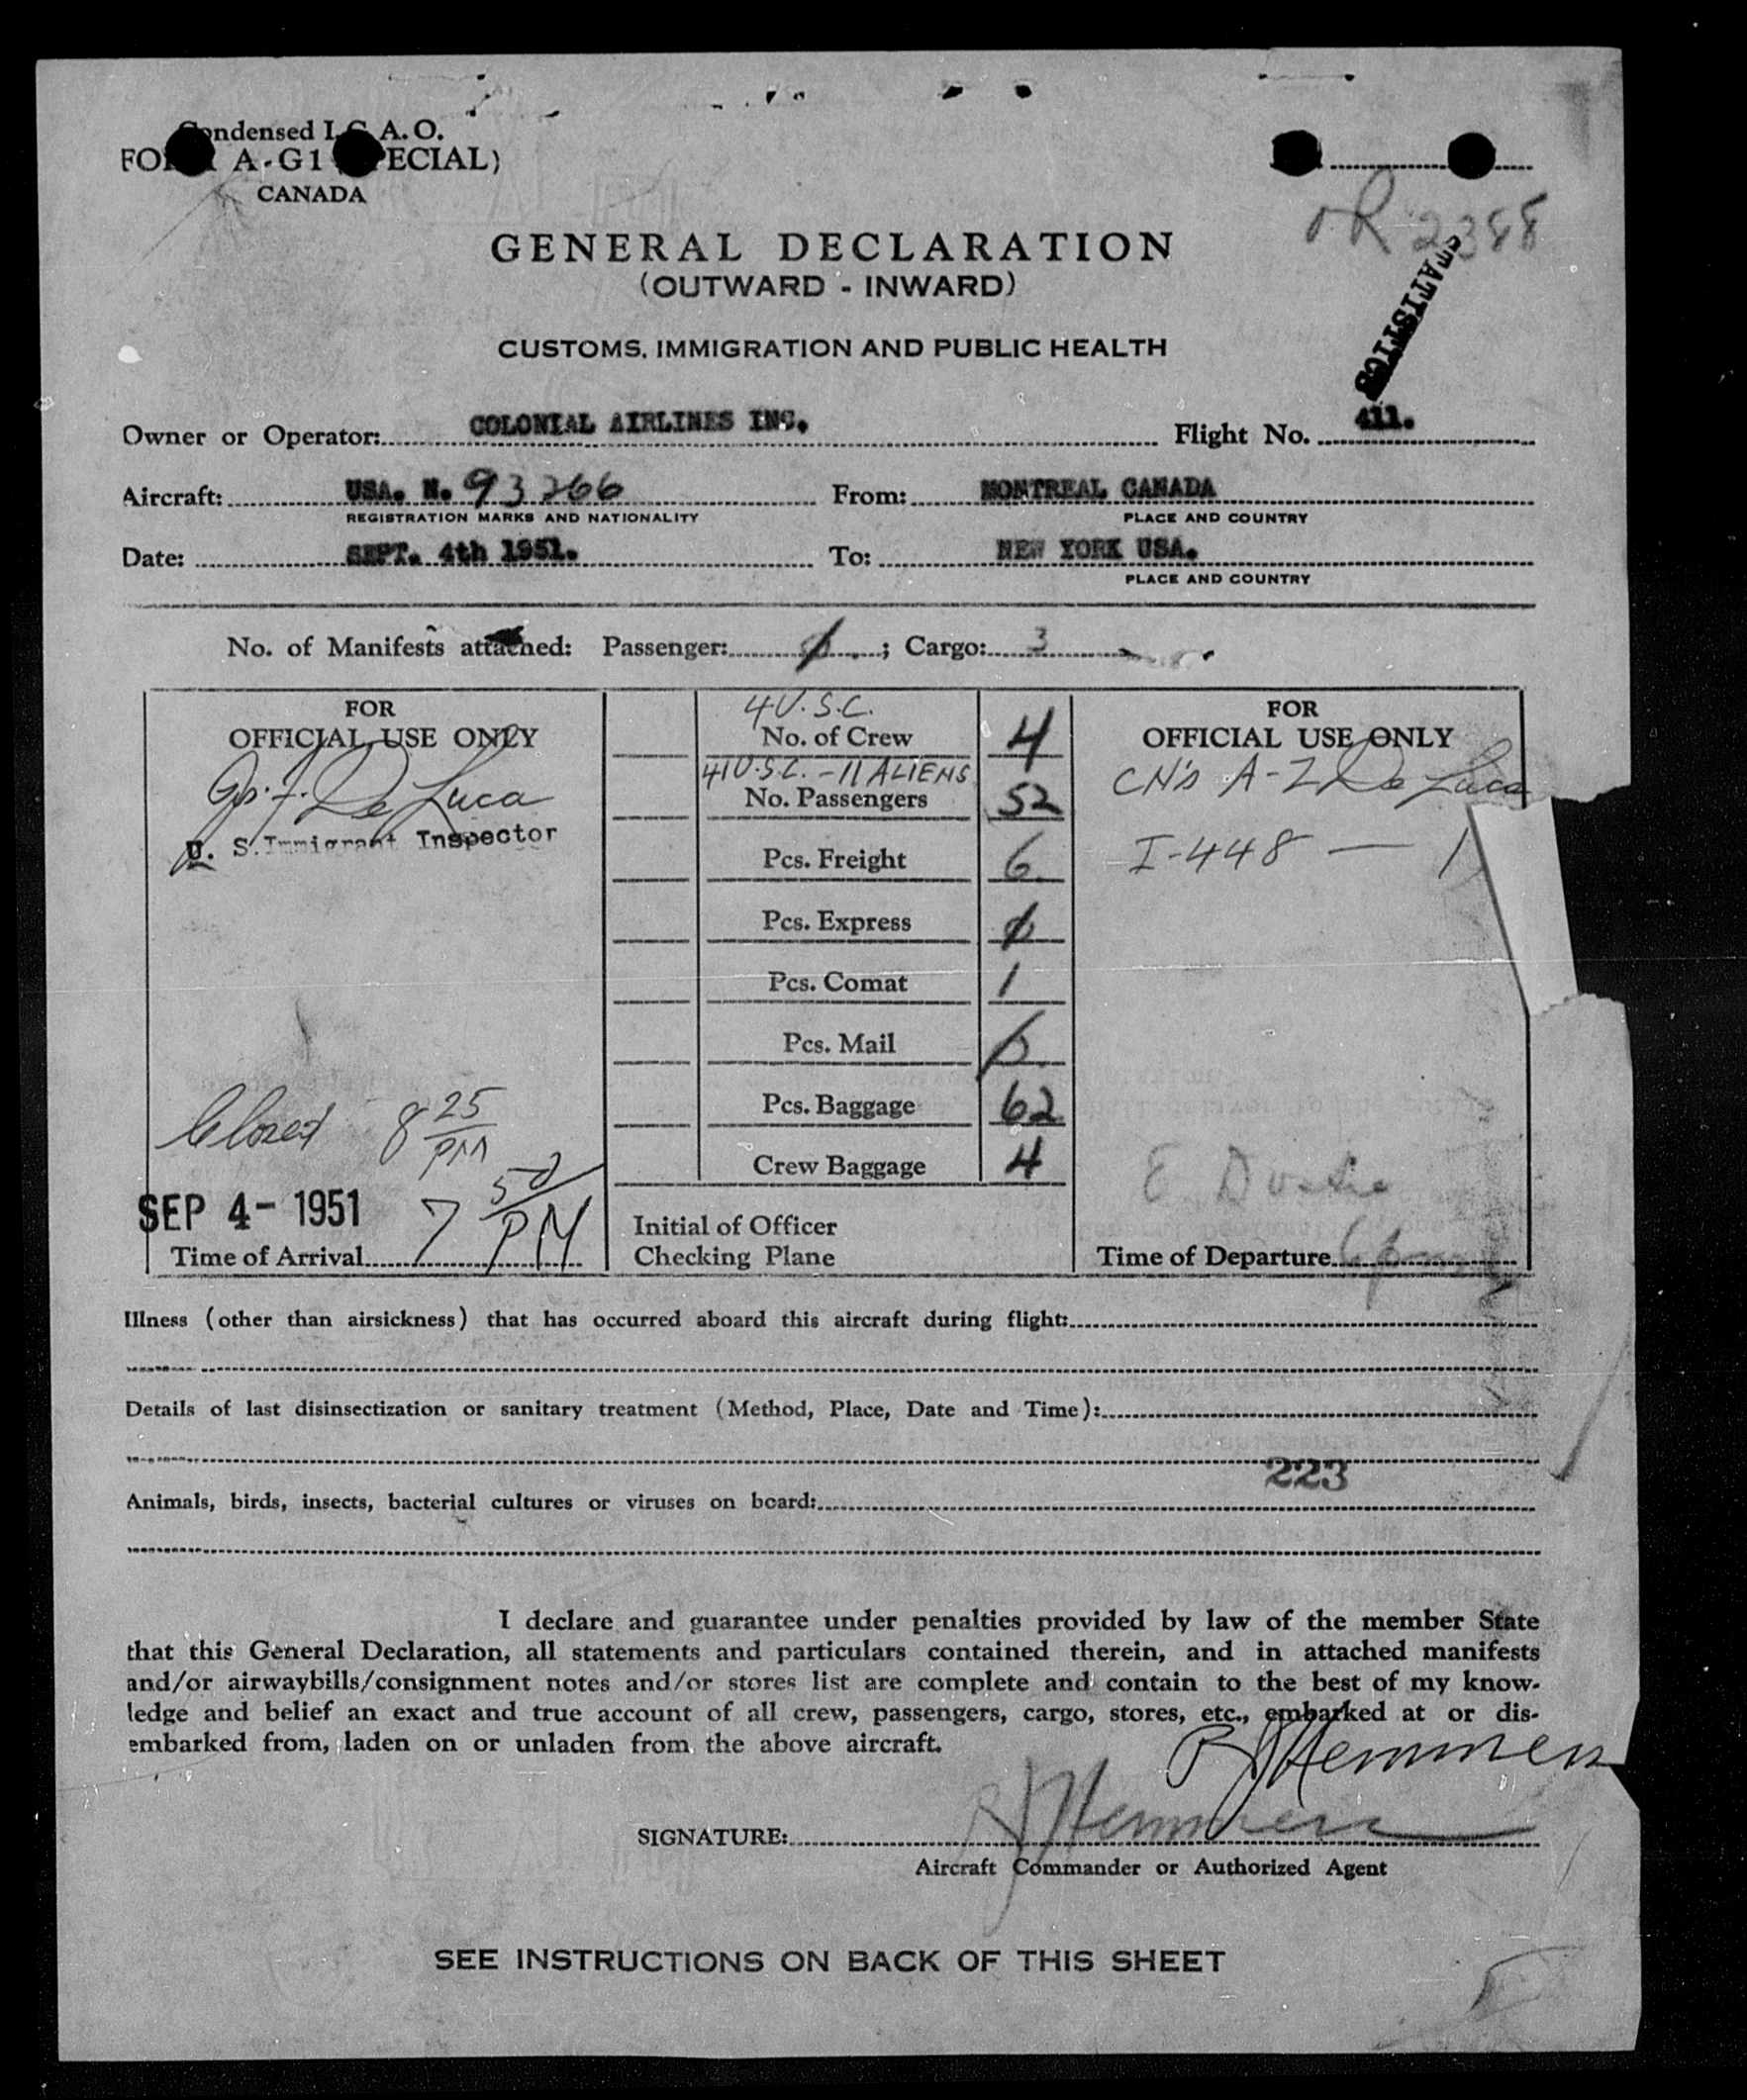 Condensed I.C.A.O.
FORM A-G1 (SPECIAL)
CANADA
2388
GENERAL DECLARATION
(OUTWARD - INWARD)
STATISTICS
CUSTOMS, IMMIGRATION AND PUBLIC HEALTH
Owner or Operator: COLONIAL AIRLINES INC. Flight No. 411.
Aircraft: USA. N. 93266 From: MONTREAL CANADA
REGISTRATION MARKS AND NATIONALITY PLACE AND COUNTRY
Date: SEPT. 4th 1951. To: NEW YORK USA.
PLACE AND COUNTRY
No. of Manifests attached: Passenger: 0 ; Cargo: 3
FOR
OFFICIAL USE ONLY
De Luca
U. S. Immigrant Inspector
Closed 8 25 PM
SEP 4 - 1951
Time of Arrival 7 50 PM
4 U.S.C.
No. of Crew 4
41 U.S.C. - 11 ALIENS
No. Passengers 52
Pcs. Freight 6
Pcs. Express 0
Pcs. Comat 1
Pcs. Mail 0
Pcs. Baggage 62
Crew Baggage 4
Initial of Officer
Checking Plane
FOR
OFFICIAL USE ONLY
CN's A-2 De Luca
I-448 — 1
Time of Departure 6 pm
Illness (other than airsickness) that has occurred aboard this aircraft during flight:
Details of last disinsectization or sanitary treatment (Method, Place, Date and Time):
223
Animals, birds, insects, bacterial cultures or viruses on board:
I declare and guarantee under penalties provided by law of the member State
that this General Declaration, all statements and particulars contained therein, and in attached manifests
and/or airwaybills/consignment notes and/or stores list are complete and contain to the best of my know-
ledge and belief an exact and true account of all crew, passengers, cargo, stores, etc., embarked at or dis-
embarked from, laden on or unladen from the above aircraft.
RJHemmen
SIGNATURE: RJHemmen
Aircraft Commander or Authorized Agent
SEE INSTRUCTIONS ON BACK OF THIS SHEET